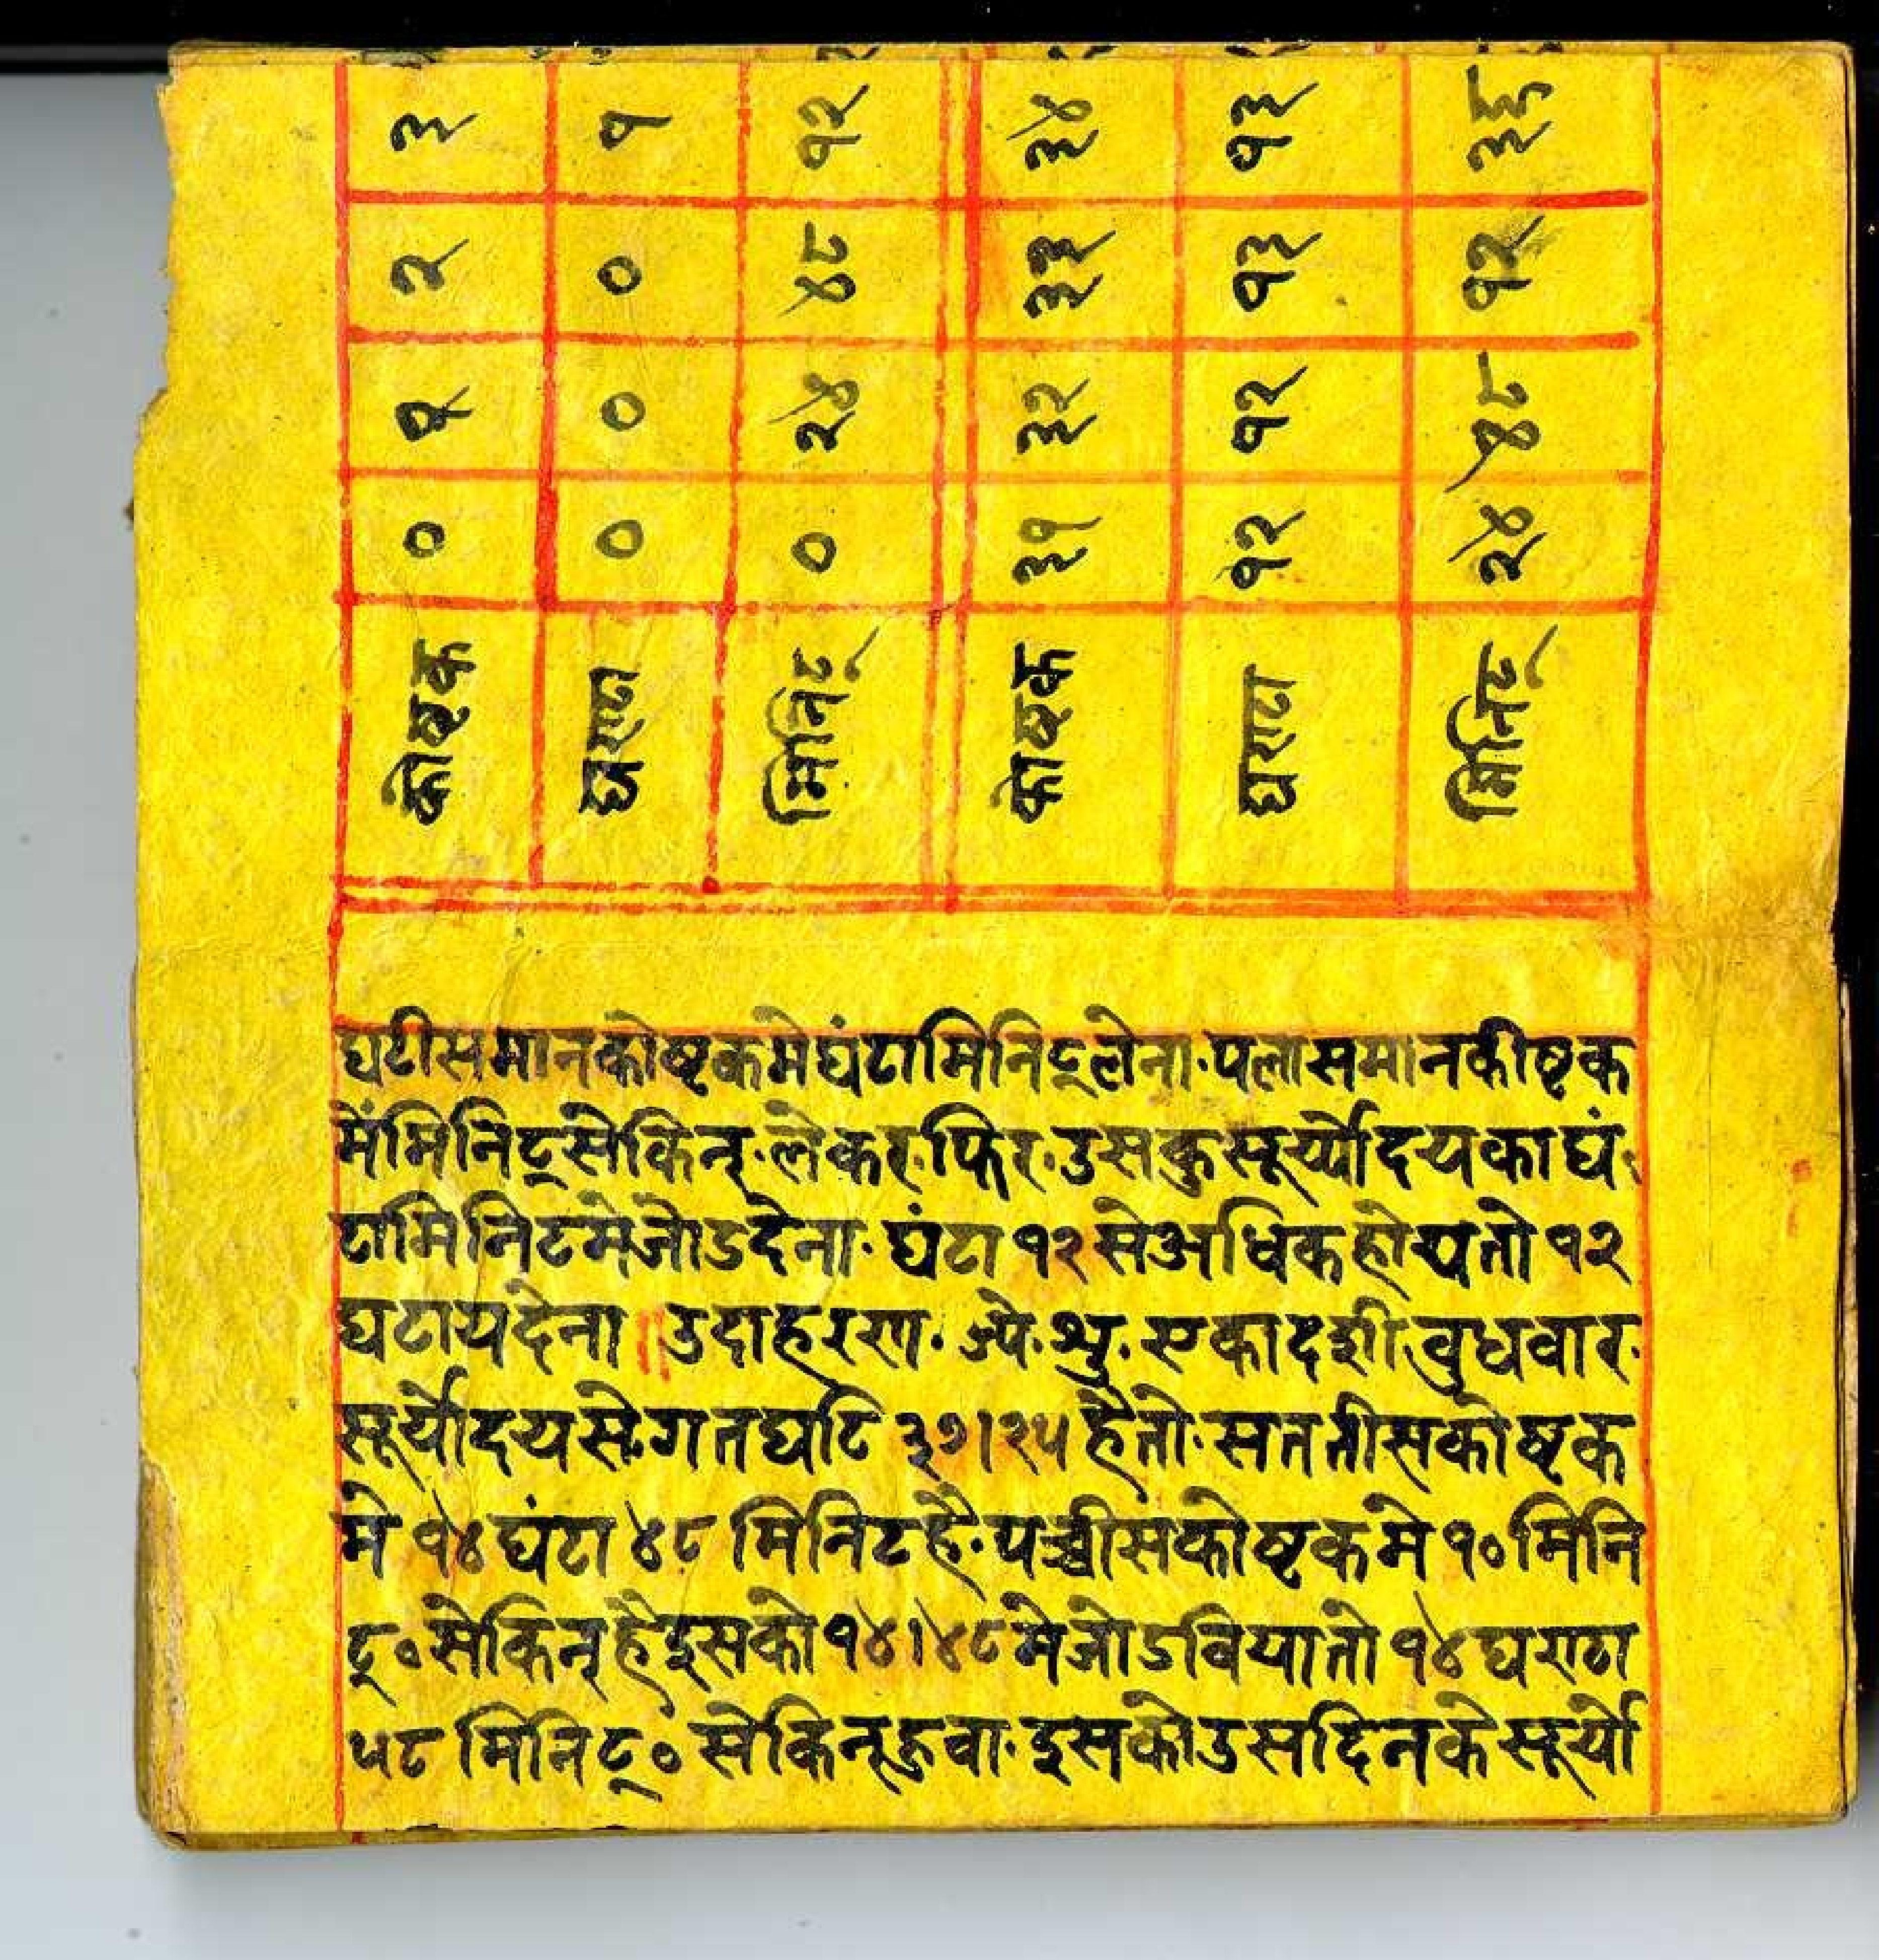 कोष्टक ० १ २ ३
घण्टा ० ० ० १
मिनिट् ० २४ ४८ १२
कोष्टक ३१ ३२ ३३ ३४
घण्टा १२ १२ १३ १३
मिनिट् २४ ४८ १२ ३६
घटीसमानकोष्टकमेघंटामिनिट्लेना॰पलासमानकोष्टक
मेंमिनिट्सेकिन्॰लेकर॰फिर॰उसकुसूर्य्योदयकाघं॰
टामिनिटमेजोडदेना॰ घंटा १२ सेअधिकहोयतो १२
घटायदेना ॥ उदाहरण॰ ज्ये॰शु॰एकादशी॰बुधवार॰
सूर्योदयसे॰गतघटि ३७।२५ हैतो॰सततीसकोष्टक
मे १४ घंटा ४८ मिनिटहै॰पच्चीसकोष्टकमे १० मिनि
ट्० सेकिन्हैइसको १४।४८ मेजोडवियातो १४ घण्ठा
५८ मिनिट्० सेकिन्हुवा॰इसकोउसदिनकेसूर्यो